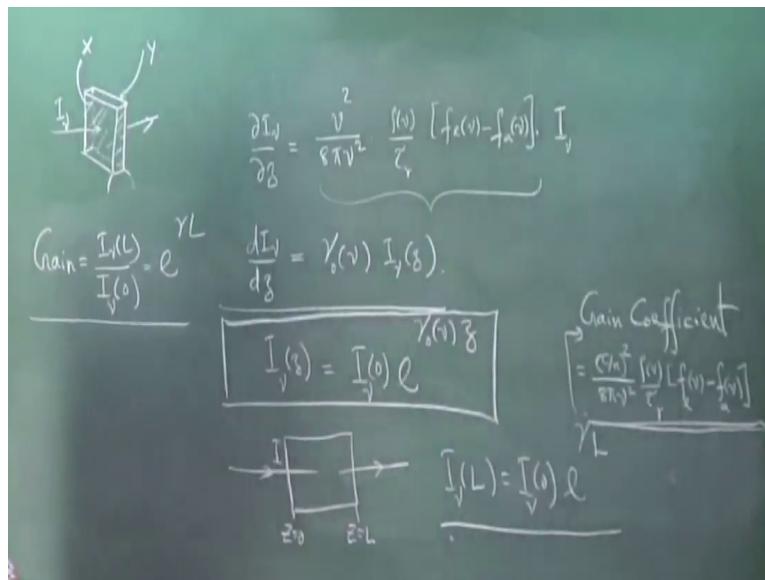 X Y
I_ν
∂I_ν/∂z = v²/8πν² ρ(ν)/τ_r [f_e(ν)-f_a(ν)]. I_ν
Gain = I_ν(L)/I_ν(0) = e^γL
dI_ν/dz = γ₀(ν) I_ν(z).
I_ν(z) = I_ν(0) e^γ₀(ν)z
Gain Coefficient
= (c/n)²/8πν² ρ(ν)/τ_r [f_e(ν)-f_a(ν)]
I
Z=0 Z=L
I_ν(L) = I_ν(0) e^γL